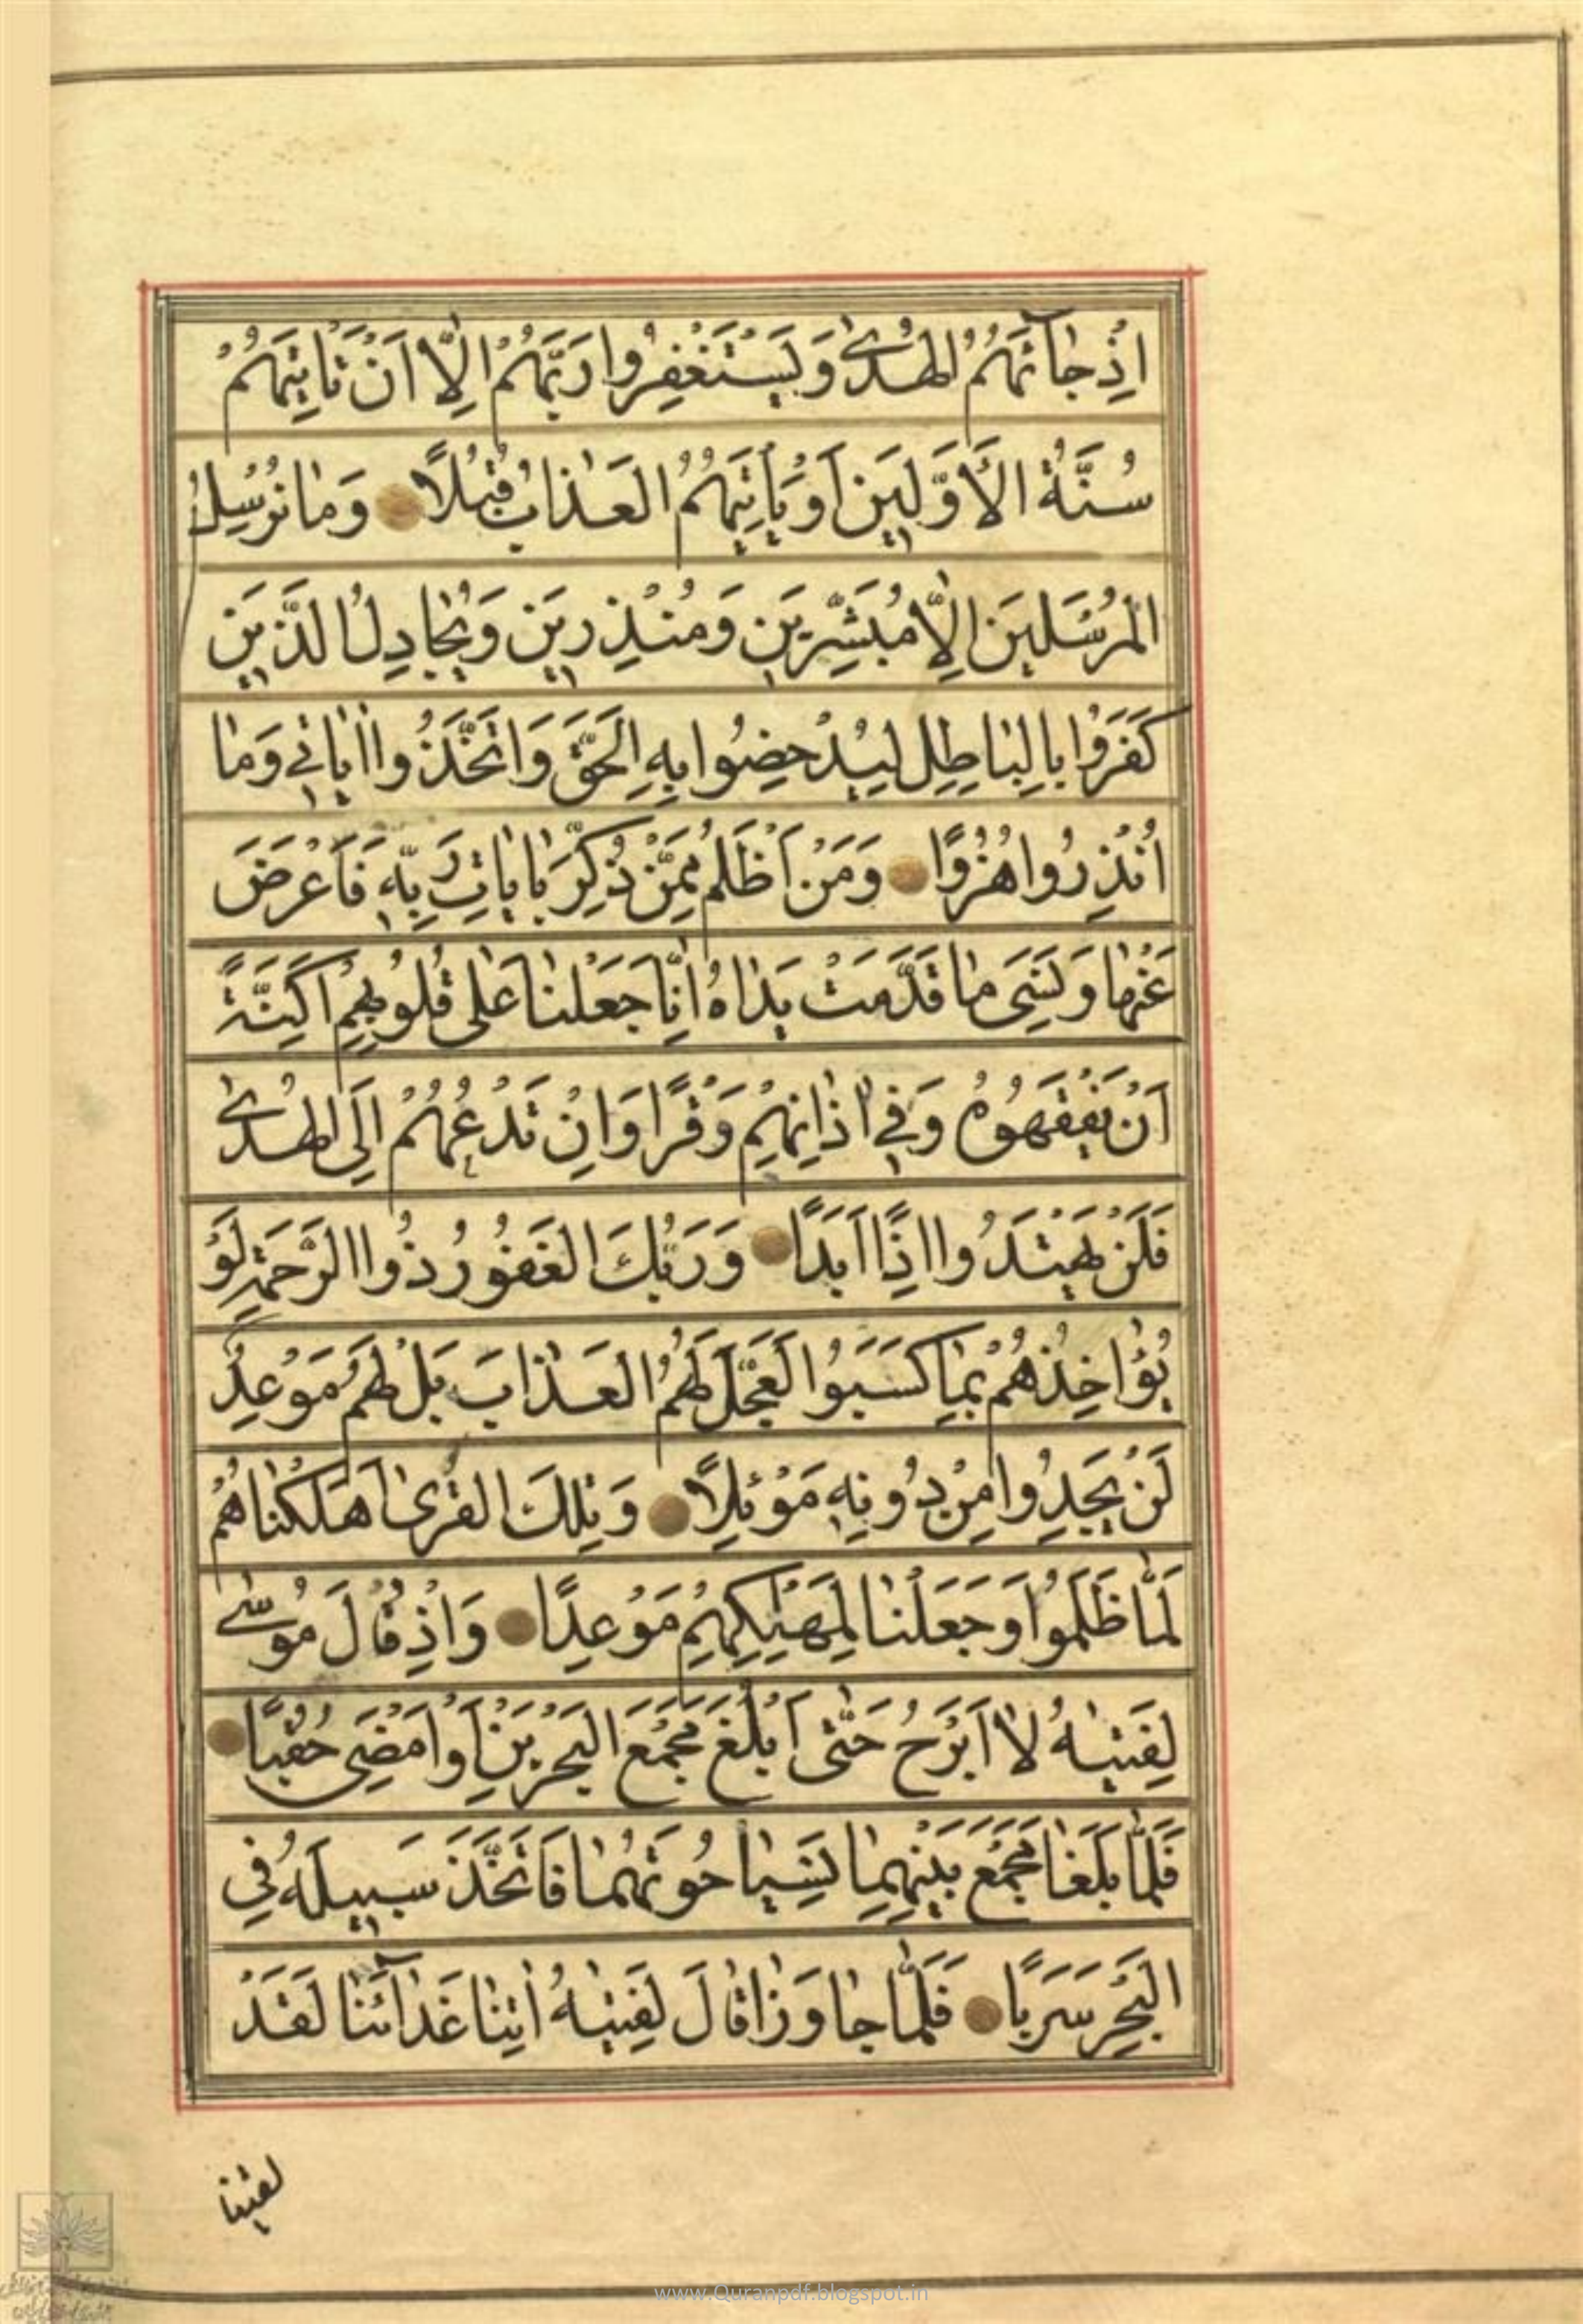 اِذْ جٰآئَهُمُ الْهُدٰى وَيَسْتَغْفِرُوا رَبَّهُمْ اِلّٰا اَنْ تَأْتِيَهُمْ
سُنَّةُ الْاَوَّلِينَ اَوْ يَأْتِيَهُمُ الْعَذٰابُ قُبُلًا وَمٰا نُرْسِلُ
الْمُرْسَلِينَ اِلّٰا مُبَشِّرِينَ وَمُنْذِرِينَ وَيُجٰادِلُ الَّذِينَ
كَفَرُوا بِالْبٰاطِلِ لِيُدْحِضُوا بِهِ الْحَقَّ وَاتَّخَذُوا اٰيٰاتِي وَمٰا
اُنْذِرُوا هُزُوًا وَمَنْ اَظْلَمُ مِمَّنْ ذُكِّرَ بِاٰيٰاتِ رَبِّهِ فَاَعْرَضَ
عَنْهٰا وَنَسِيَ مٰا قَدَّمَتْ يَدٰاهُ اِنّٰا جَعَلْنٰا عَلٰى قُلُوبِهِمْ اَكِنَّةً
اَنْ يَفْقَهُوهُ وَفِي اٰذٰانِهِمْ وَقْرًا وَاِنْ تَدْعُهُمْ اِلَى الْهُدٰى
فَلَنْ يَهْتَدُوا اِذًا اَبَدًا وَرَبُّكَ الْغَفُورُ ذُوا الرَّحْمَةِ لَوْ
يُؤٰاخِذُهُمْ بِمٰا كَسَبُوا لَعَجَّلَ لَهُمُ الْعَذٰابَ بَلْ لَهُمْ مَوْعِدٌ
لَنْ يَجِدُوا مِنْ دُونِهِ مَوْئِلًا وَتِلْكَ الْقُرٰى اَهْلَكْنٰاهُمْ
لَمّٰا ظَلَمُوا وَجَعَلْنٰا لِمَهْلِكِهِمْ مَوْعِدًا وَاِذْ قٰالَ مُوسٰى
لِفَتٰيهُ لٰا اَبْرَحُ حَتّٰى اَبْلُغَ مَجْمَعَ الْبَحْرَيْنِ اَوْ اَمْضِيَ حُقُبًا
فَلَمّٰا بَلَغٰا مَجْمَعَ بَيْنِهِمٰا نَسِيٰا حُوتَهُمٰا فَاتَّخَذَ سَبِيلَهُ فِي
الْبَحْرِ سَرَبًا فَلَمّٰا جٰاوَزٰا قٰالَ لِفَتٰيهُ اٰتِنٰا غَدٰآئَنٰا لَقَدْ
لقينا
www.Quranpdf.blogspot.in